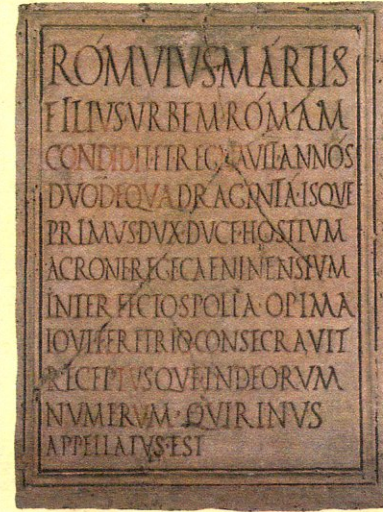 RÓMVLVS·MÁRTIS
FILIVS·VRBEM·RÓMAM
CONDIDIT·ET·REGNAVIT·ANNÓS
DVODEQVADRAGINTÁ·ISQVE
PRIMVS·DVX·DVCE·HOSTIVM
ACRONE·REGE·CAENINENSIVM
INTERFECTO·SPOLIA·OPIMA
IOVI·FERETRIO·CONSECRAVIT
RECEPTVSQVE·IN·DEORVM
NVMERVM·QVIRINVS
APPELLATVS·EST